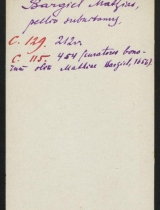 Bargiel Mathias,
pellio suburbanus.
C. 129. 212v.
C. 115. 454 (curatores bono-
rum olim Mathiae Bargiel, 1652).